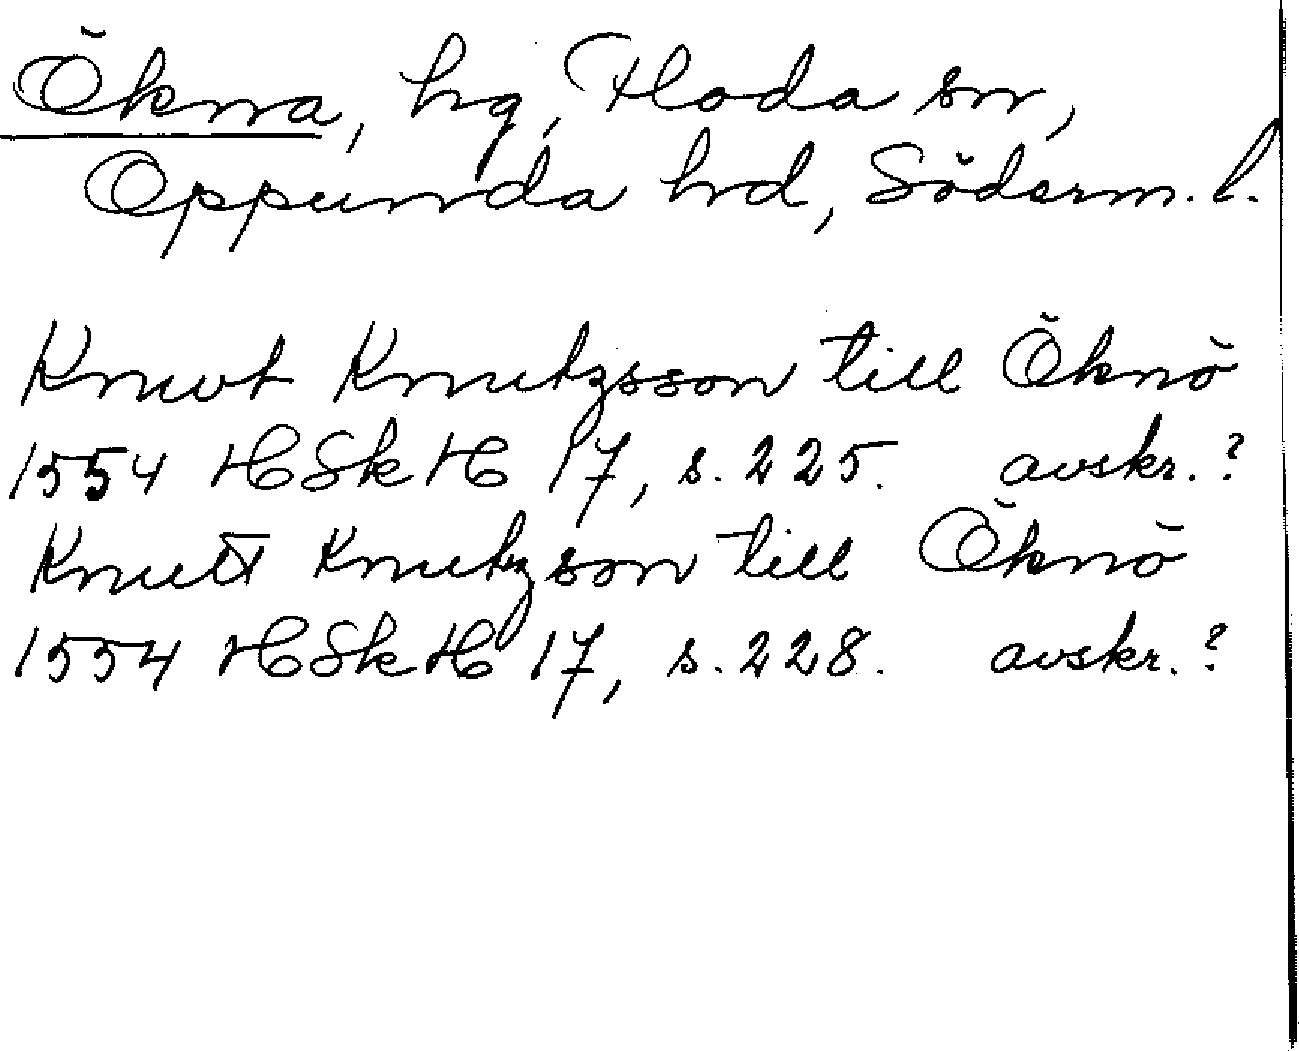 Ökna, hg, Floda sn,
Oppunda hd, Söderm. l.
Knut Knutzsson till Öknö
1554 HSkH 17, s. 225. avskr.?
Knutt Knutzson till Öknö
1554 HSkH 17, s. 228. avskr.?